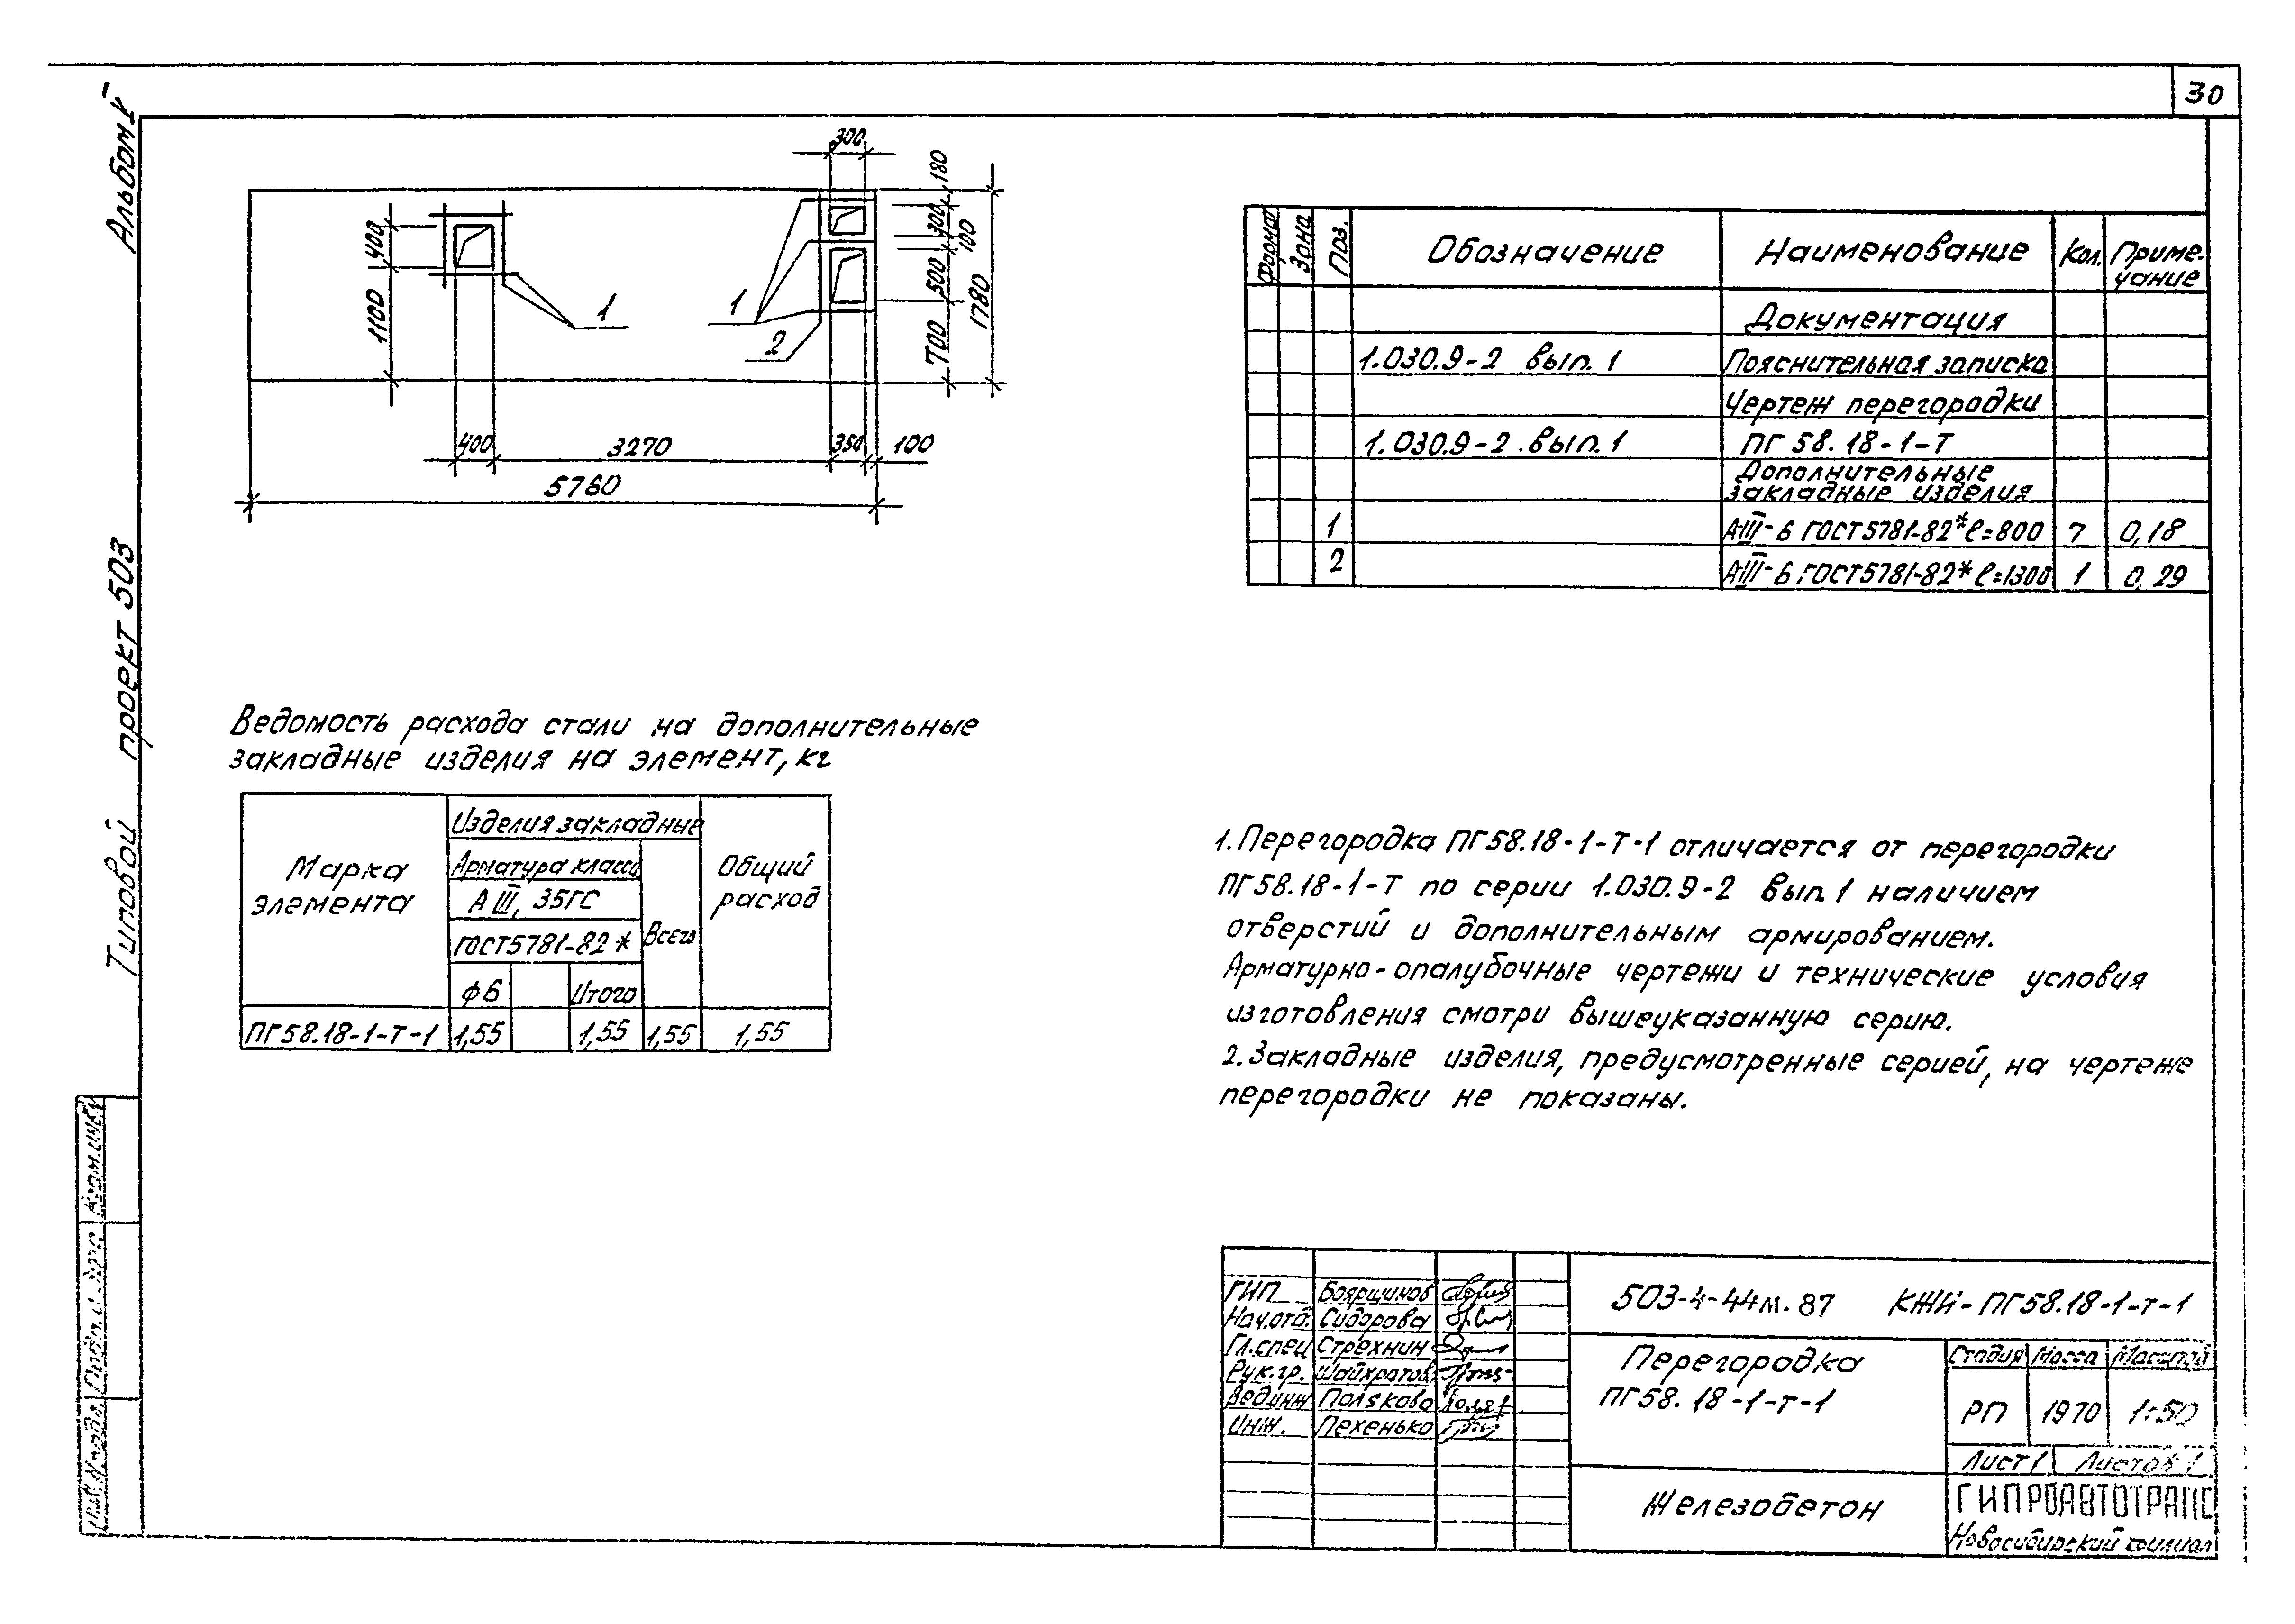 30
Альбом V
Типовой проект 503
300
180
300
100
500
700
1780
400
1100
1
1
2
400
3270
350
100
5760
Формат
Зона
Поз.
Обозначение
Наименование
Кол.
Приме-
чание
Документация
1.030.9-2 вып. 1
Пояснительная записка
Чертеж перегородки
1.030.9-2. вып. 1
ПГ 58. 18-1-Т
Дополнительные
закладные изделия
1 АIII-6 ГОСТ5781-82* ℓ=800 7 0,18
2 АIII-6 ГОСТ5781-82* ℓ=1300 1 0,29
Ведомость расхода стали на дополнительные
закладные изделия на элемент, кг
Марка
элемента
Изделия закладные
Арматура класса
А III, 35ГС
ГОСТ5781-82*
ф6
Итого
Всего
Общий
расход
ПГ58.18-1-Т-1 1,55 1,55 1,55 1,55
1. Перегородка ПГ58.18-1-Т-1 отличается от перегородки
ПГ58.18-1-Т по серии 1.030.9-2 вып. 1 наличием
отверстий и дополнительным армированием.
Арматурно-опалубочные чертежи и технические условия
изготовления смотри вышеуказанную серию.
2. Закладные изделия, предусмотренные серией, на чертеже
перегородки не показаны.
ГИП Боярщинов
Нач.отд. Сидорова
Гл.спец Стрехнин
Рук.гр. Шайхратов
Вединж Полякова
Инж. Пехенько
503-4-44м.87 КЖИ-ПГ58.18-1-т-1
Перегородка
ПГ58. 18-1-т-1
Стадия Масса Масштаб
РП 1970 1:50
Лист 1 Листов 1
Железобетон
ГИПРОАВТОТРАНС
Новосибирский филиал
Взам.инв.
Подп. и дата
Инв.№подл.